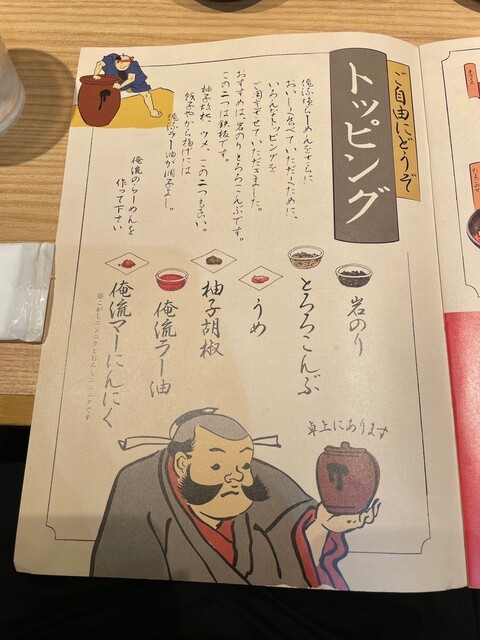 ご自由にどうぞ
トッピング
俺流塩らーめんをさらに
おいしく食べていただくために、
いろんなトッピングを
ご用意させていただきました。
おすすめは、岩のりとろろこんぶです。
この二つは鉄板です。
柚子胡椒、ウメ、この二つもあい。
餃子やから揚げには
俺流ラー油が調子よし。
俺流のらーめんを
作って下さい
岩のり
とろろこんぶ
うめ
柚子胡椒
俺流ラー油
俺流マーにんにく
※こがしニンニクとおろしニンニクです
卓上にあります